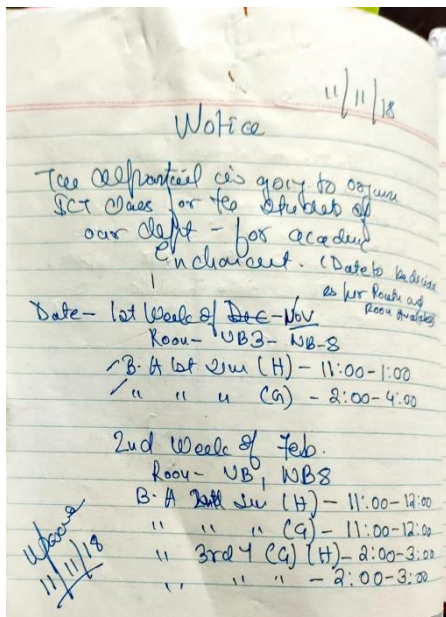 11/11/18
Notice
The department is going to organise
ICT class for the students of
our dept - for academic
Enhancement. (Date to be decide
as per Routine and
Room Available)
Date - 1st Week of Dec - Nov
Room - NB3 - NB-8
B.A 1st Sem (H) - 11:00-1:00
" " " (G) - 2:00-4:00
2nd Week of Feb.
Room - NB, NB8
B.A 2nd Sem (H) - 11:00-12:00
" " " (G) - 11:00-12:00
" 3rd Y (G) (H) - 2:00-3:00
" " " - 2:00-3:00
11/11/18